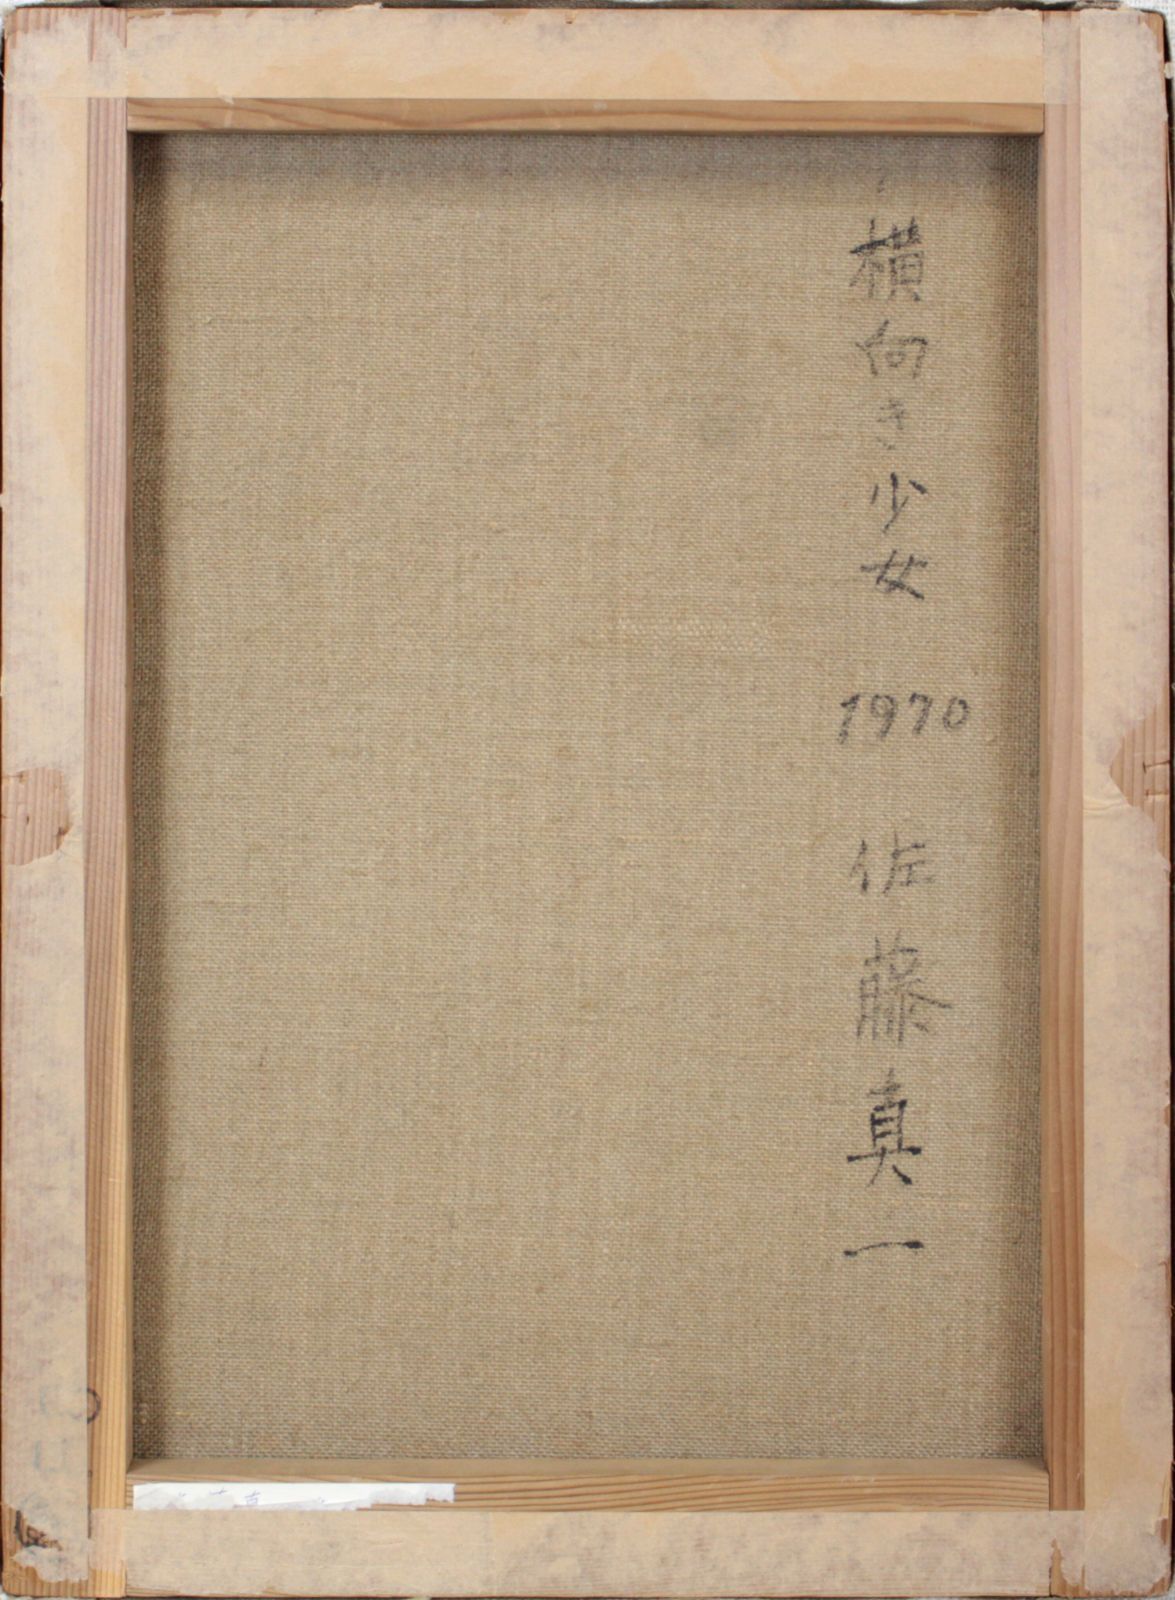 横向き少女 1970 佐藤真一